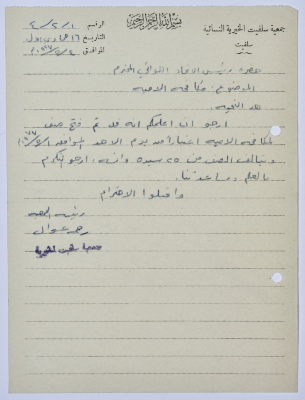 بسم الله الرحمن الرحيم
جمعية سلفيت الخيرية النسائية
سلفيت
الرقم ٢/٢/١
التاريخ ١٦ جمادى
الموافق
حضرة رئيس الاتحاد اللوائي المحترم
الموضوع: مكافحة الامية
بعد التحية
ارجو ان اعلمكم انه قد تم فتح صف
لمكافحة الامية اعتبارا من يوم الاحد الموافق
ويتألف الصف من ٢٥ سيدة ارجو
بالعلم ومساعدتنا
واقبلوا الاحترام
رئيسة الجمعية
جمعية سلفيت الخيرية